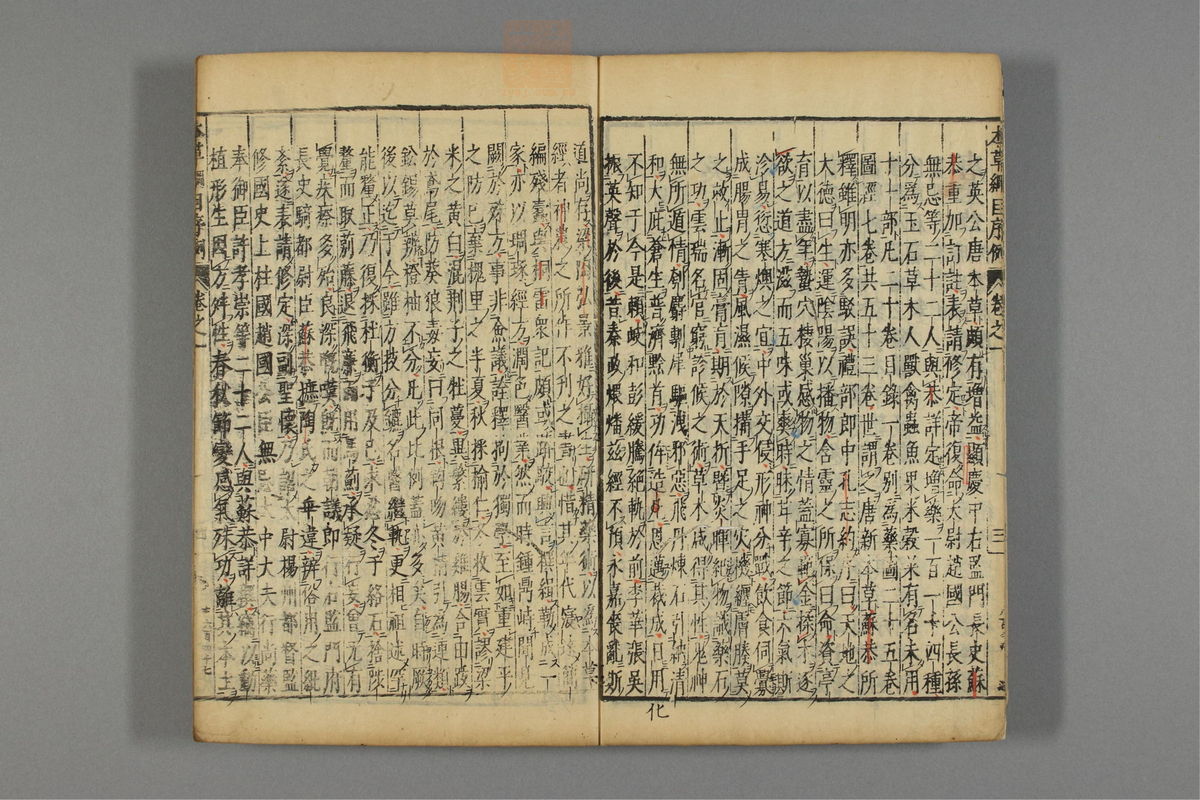 本草綱目序例 卷之一 三
之英公唐本草頗有增益顯慶中右監門長史蘇
恭重加訂註表請修定帝復命太尉趙國公長孫
無忌等二十二人與恭詳定增藥一百一十四種
分為玉石草木人獸禽蟲魚果米穀菜有名未用
十一部凡二十卷目錄一卷別為藥圖二十五卷
圖經七卷共五十三卷世謂之唐新本草蘇恭所
釋雖明亦多駁誤禮部郎中孔志約序曰天地之
大德曰生運陰陽以播物含靈之所保曰命資亭
育以盡年蟄穴棲巢感物之情蓋寡範金揉木逐
欲之道方滋而五味或爽時昧甘辛之節六氣斯
沴易愆寒燠之宜中外交侵形神分戰飲食伺釁
成腸胃之眚風濕候隙搆手足之災機纏膚腠莫
之救止漸固膏肓期於夭折暨炎暉紀物識藥石
之功雲瑞名官窮診候之術草木咸得其性鬼神
無所遁情刳麝剸犀驅洩邪惡飛丹煉石引納清
和大庇蒼生普濟黔首功侔造化恩邁裁成日用
不知于今是賴岐和彭緩騰絕軌於前李華張吳
振英聲於後昔秦政煨燔茲經不預永嘉喪亂斯
化
道尚存梁陶弘景雅好攝生研精藥術以為本草
經者神農之所作不刊之書也惜其年代浸遠簡
編殘蠹與桐雷眾記頗或踳駁興言撰緝勒成一
家亦以琱琢經方潤色醫業然而時鍾鼎峙聞見
闕於殊方事非僉議詮釋拘於獨學至如重建平
之防己棄槐里之半夏秋採榆仁冬收雲實謬粱
米之黃白混荊子之牡蔓異繁縷於雞腸合由跋
於鳶尾防葵狼毒妄曰同根鉤吻黃精引為連類
鉛錫莫辨橙柚不分凡此比例蓋亦多矣自時厥
後以迄于今雖方技分鑣名醫繼軌更相祖述罕
能釐正乃復採杜衡于及己求忍冬于絡石捨陟
釐而取莂藤退飛廉而用馬薊承疑行妄曾無有
覺疾瘵多殆良深慨嘆既而朝議郎行右監門府
長史騎都尉臣蘇恭摭陶氏之乖違辨俗用之紕
紊遂表請修定深副聖懷乃詔太尉揚州都督監
修國史上柱國趙國公臣無忌太中大夫行尚藥
奉御臣許孝崇等二十二人與蘇恭詳撰竊以動
植形生因方舛性春秋節變感氣殊功離其本土
本草綱目序例 卷之一